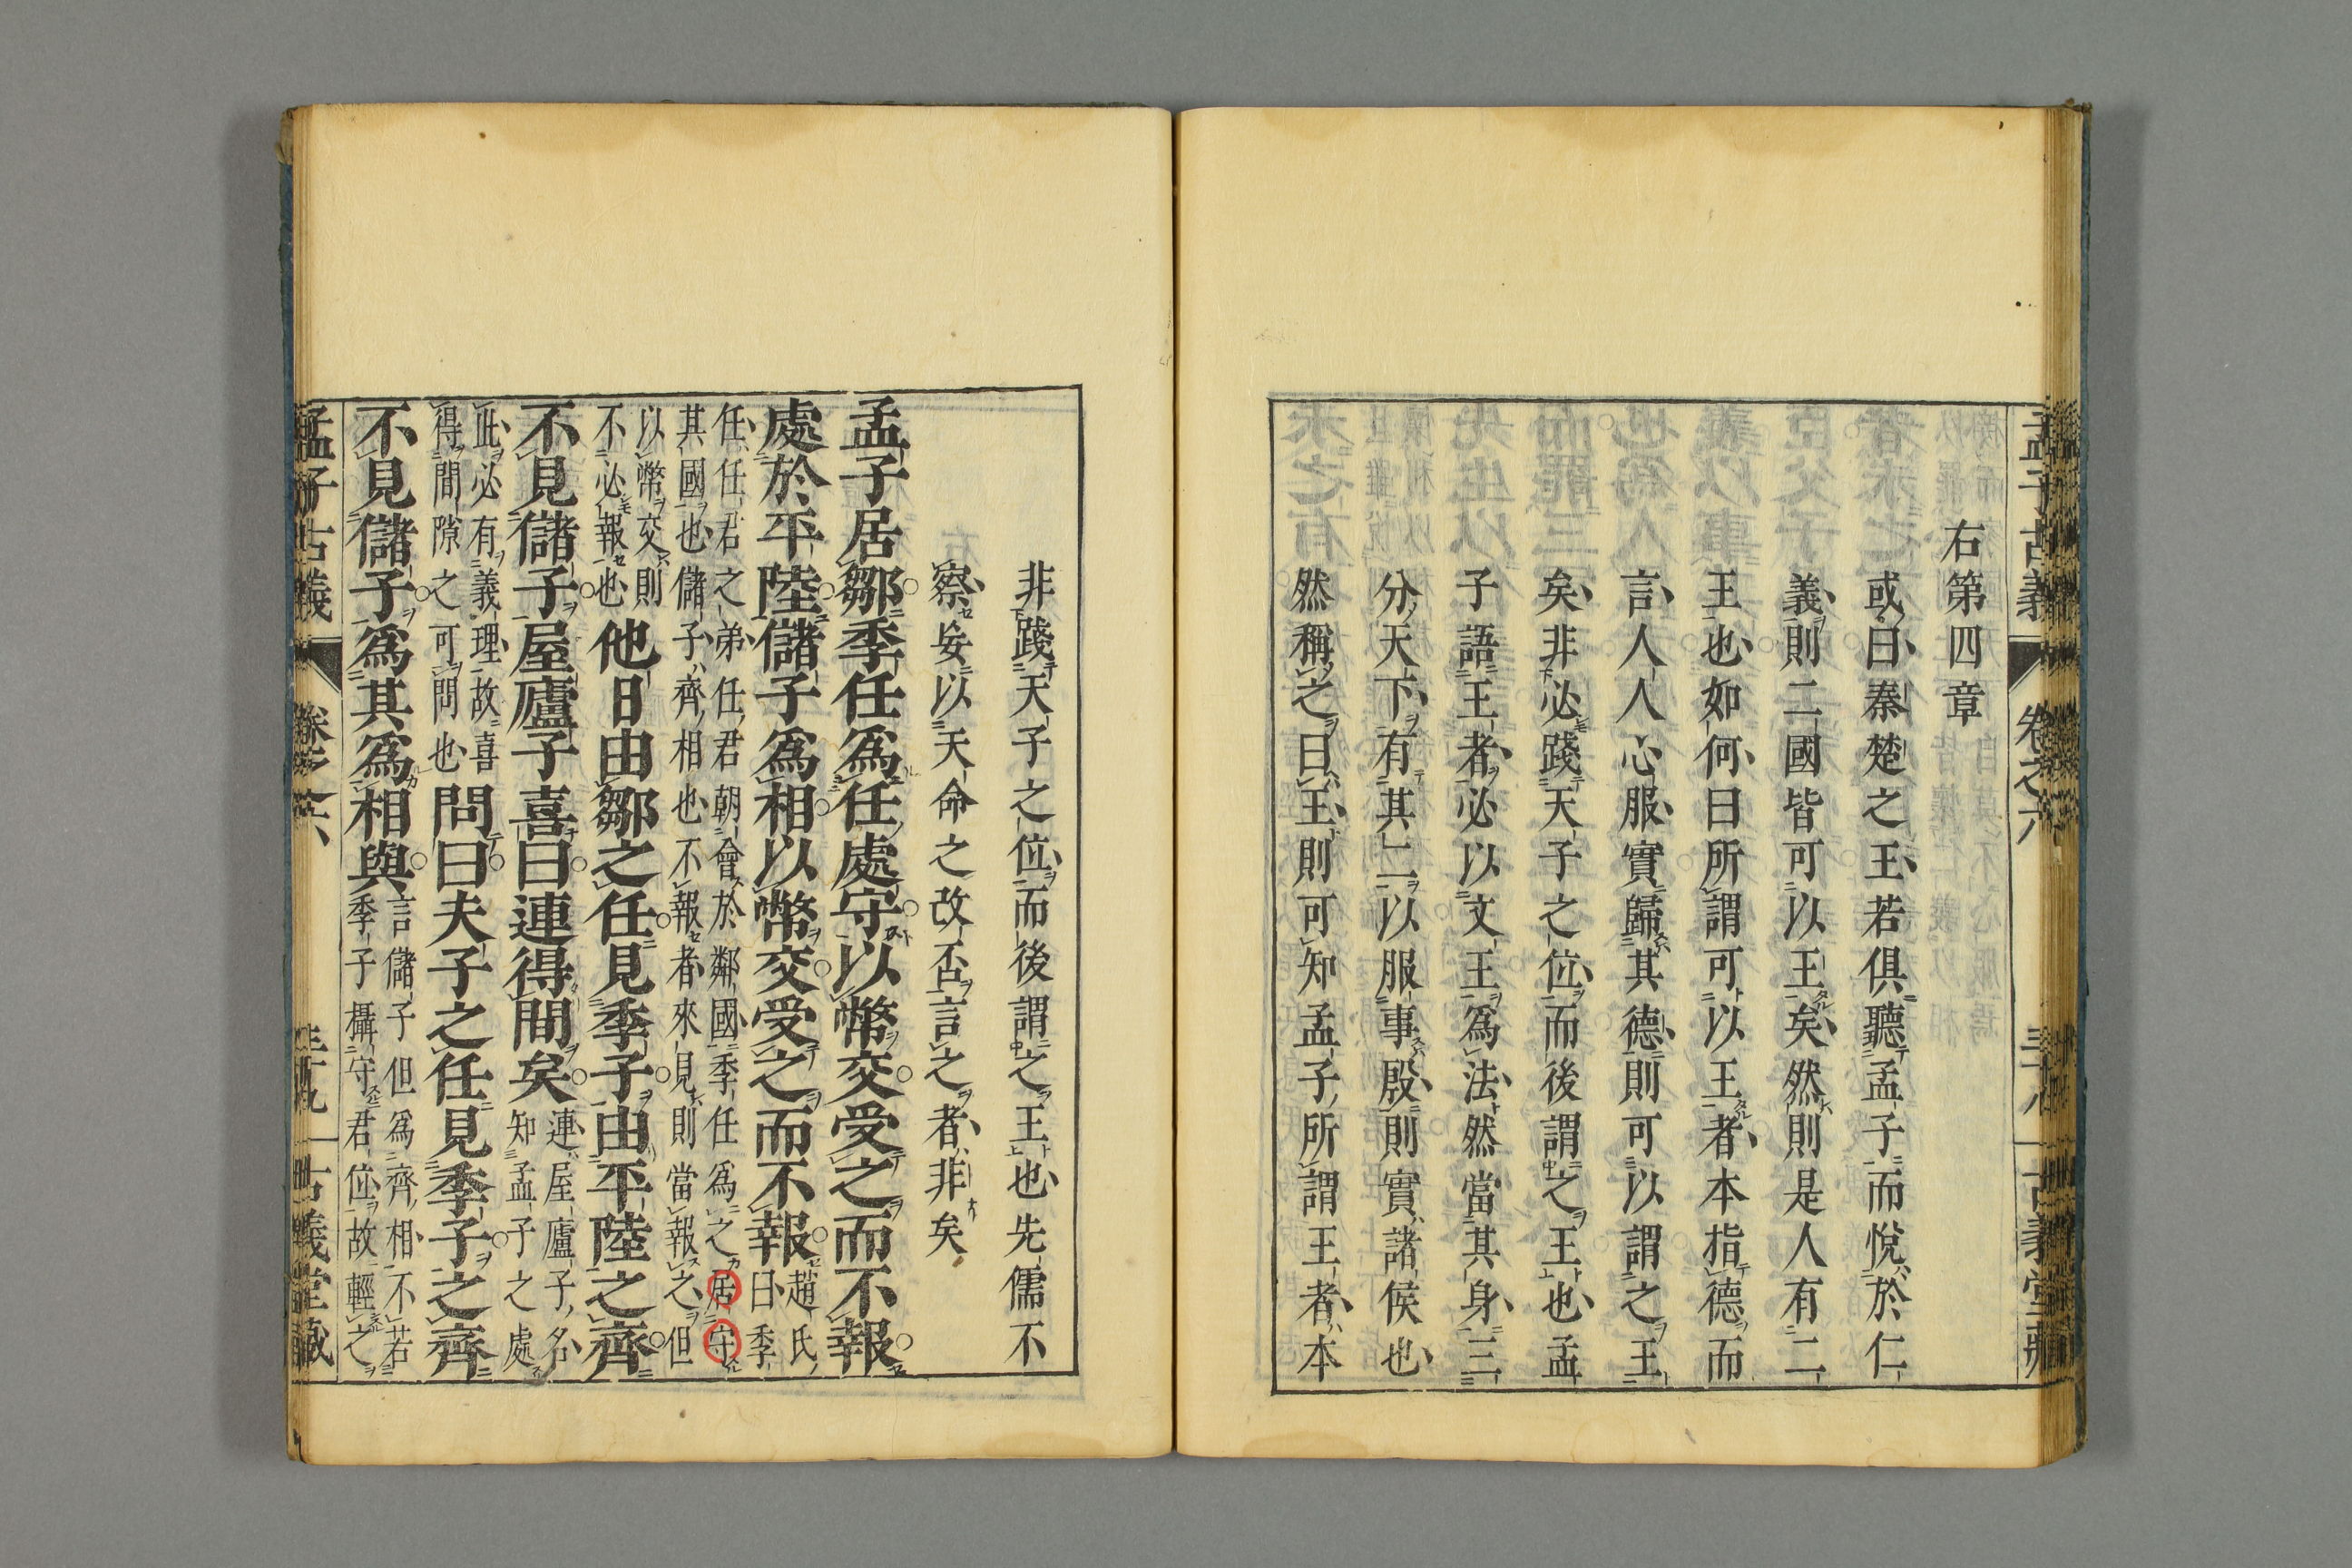 孟子古義 卷之六 三十八 古義堂藏
右第四章
或曰秦楚之王若俱聽孟子而悅於仁
義則二國皆可以王矣然則是人有二
王也如何曰所謂可以王者本指德而
言人人心服實歸其德則可以謂之王
矣非必踐天子之位而後謂之王也孟
子語王者必以文王爲法然當其身三
分天下有其二以服事殷則實諸侯也
然稱之曰王則可知孟子所謂王者本
非踐天子之位而後謂之王也先儒不
察妄以天命之改否言之者非矣
孟子居鄒季任爲任處守以幣交受之而不報
處於平陸儲子爲相以幣交受之而不報
趙氏
曰季
任任君之弟任君朝會於鄰國季任爲之居守
其國也儲子齊相也不報者來見則當報之但
以幣交則
不必報也
他日由鄒之任見季子由平陸之齊
不見儲子屋廬子喜曰連得間矣
連屋廬子名
知孟子之處
此必有義理故喜
得間隙之可問也
問曰夫子之任見季子之齊
不見儲子爲其爲相與
言儲子但爲齊相不若
季子攝守君位故輕之
孟子古義 卷之六 三十九 古義堂藏